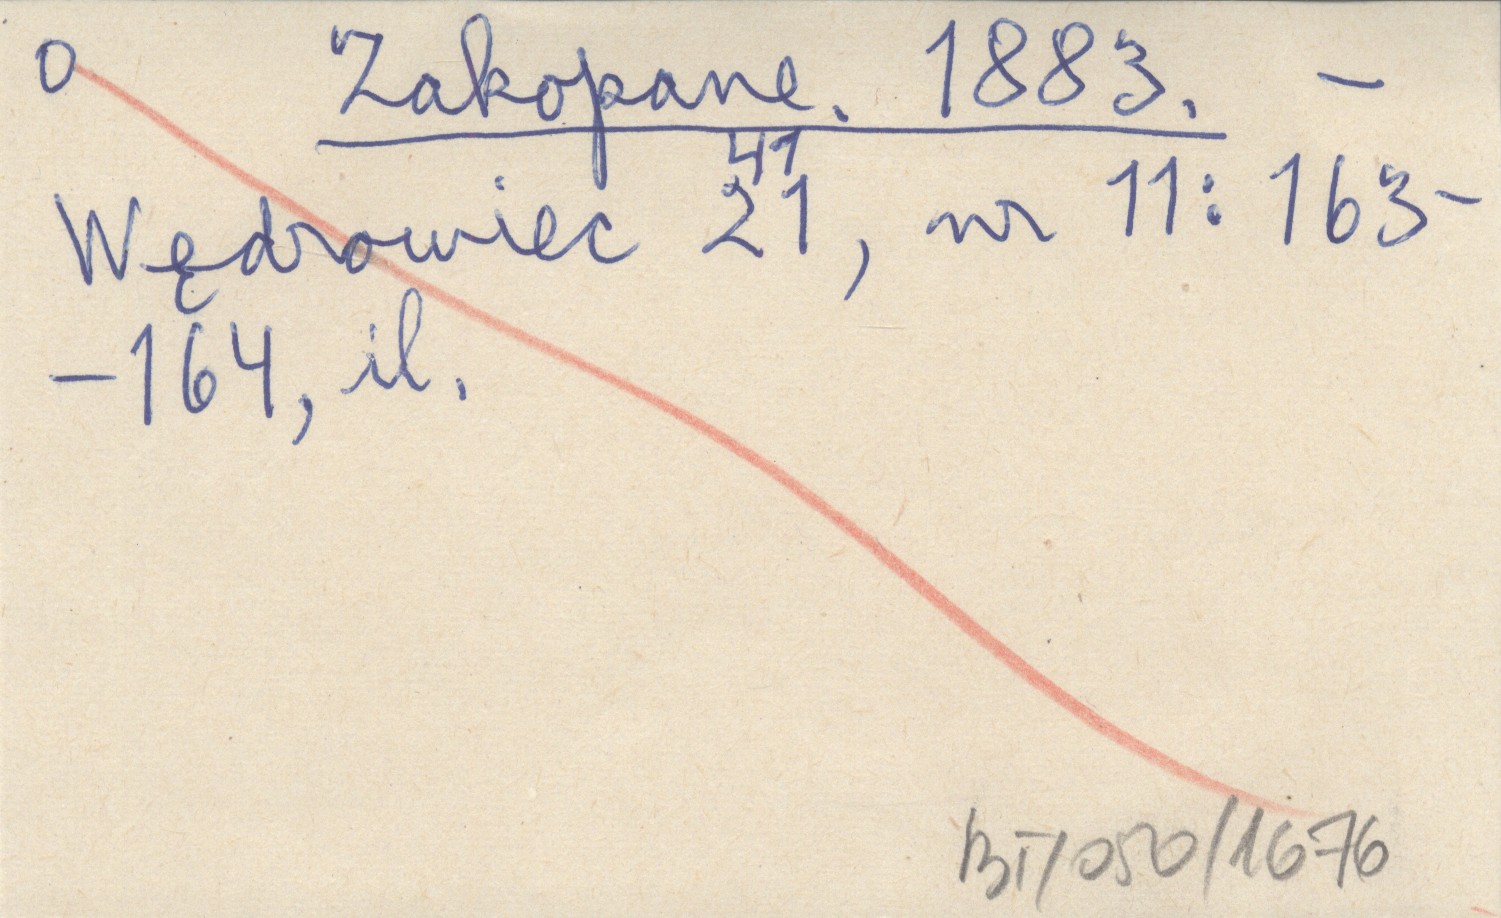 0 Zakopane. 1883. –
41
Wędrowiec 21, nr 11: 163-
-164, il.
BT/050/1676